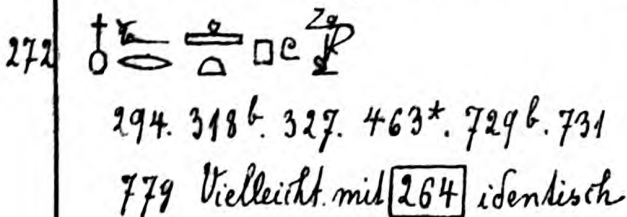 272
294. 318b. 327. 463*. 729b. 731
779 Vielleicht. mit 264 identisch